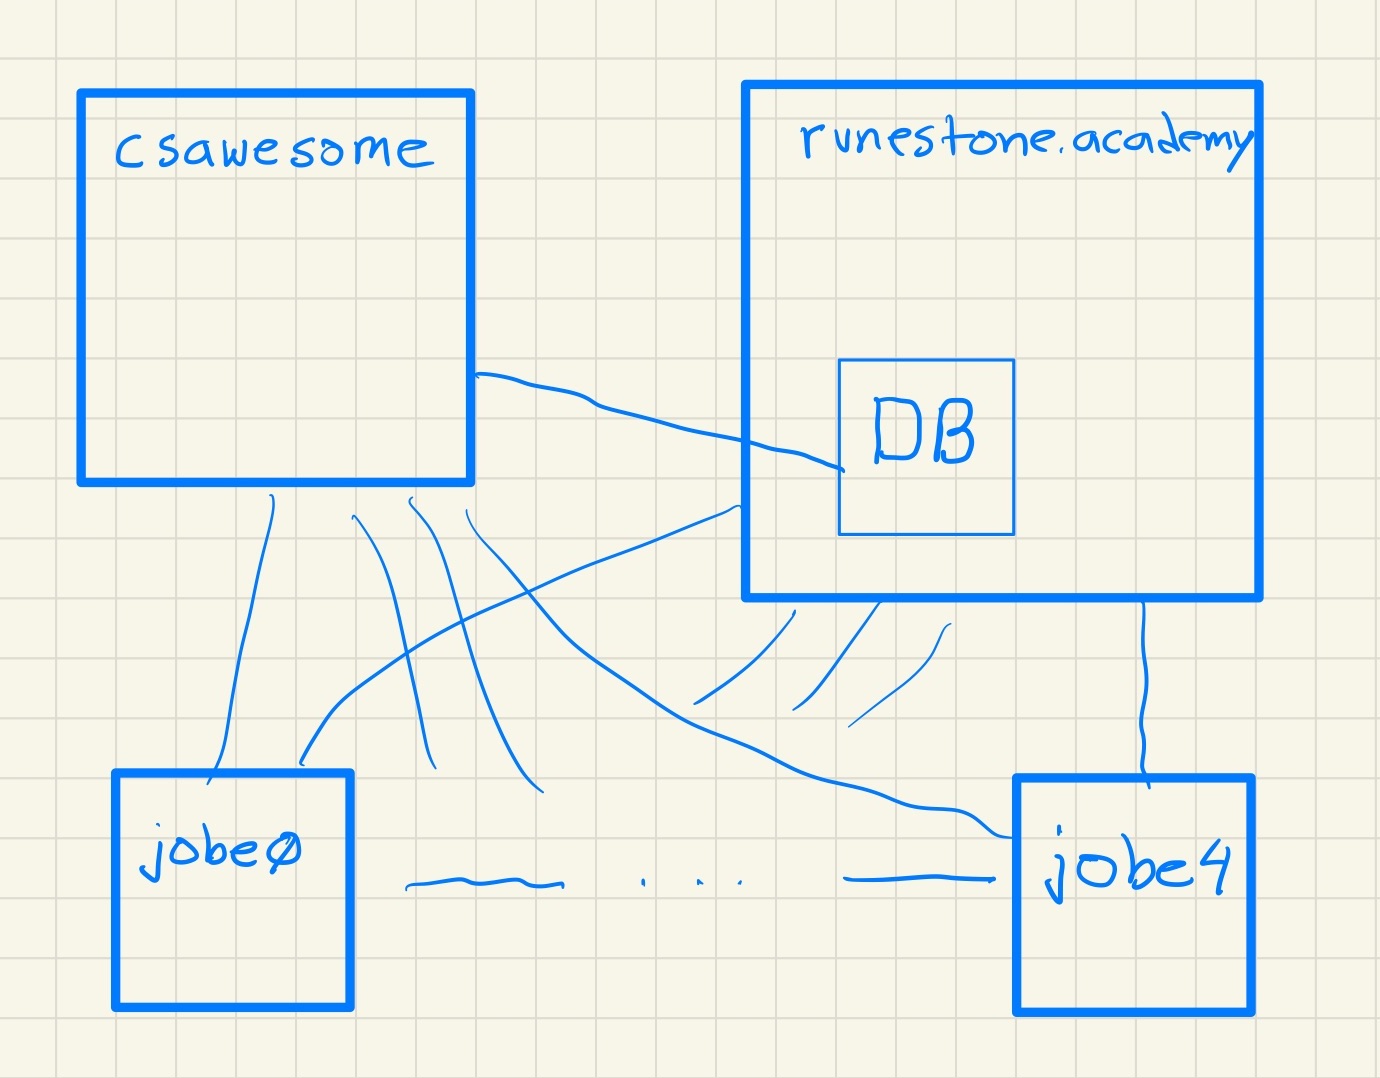 csawesome
runestone.academy
DB
jobe0
. . .
jobe4